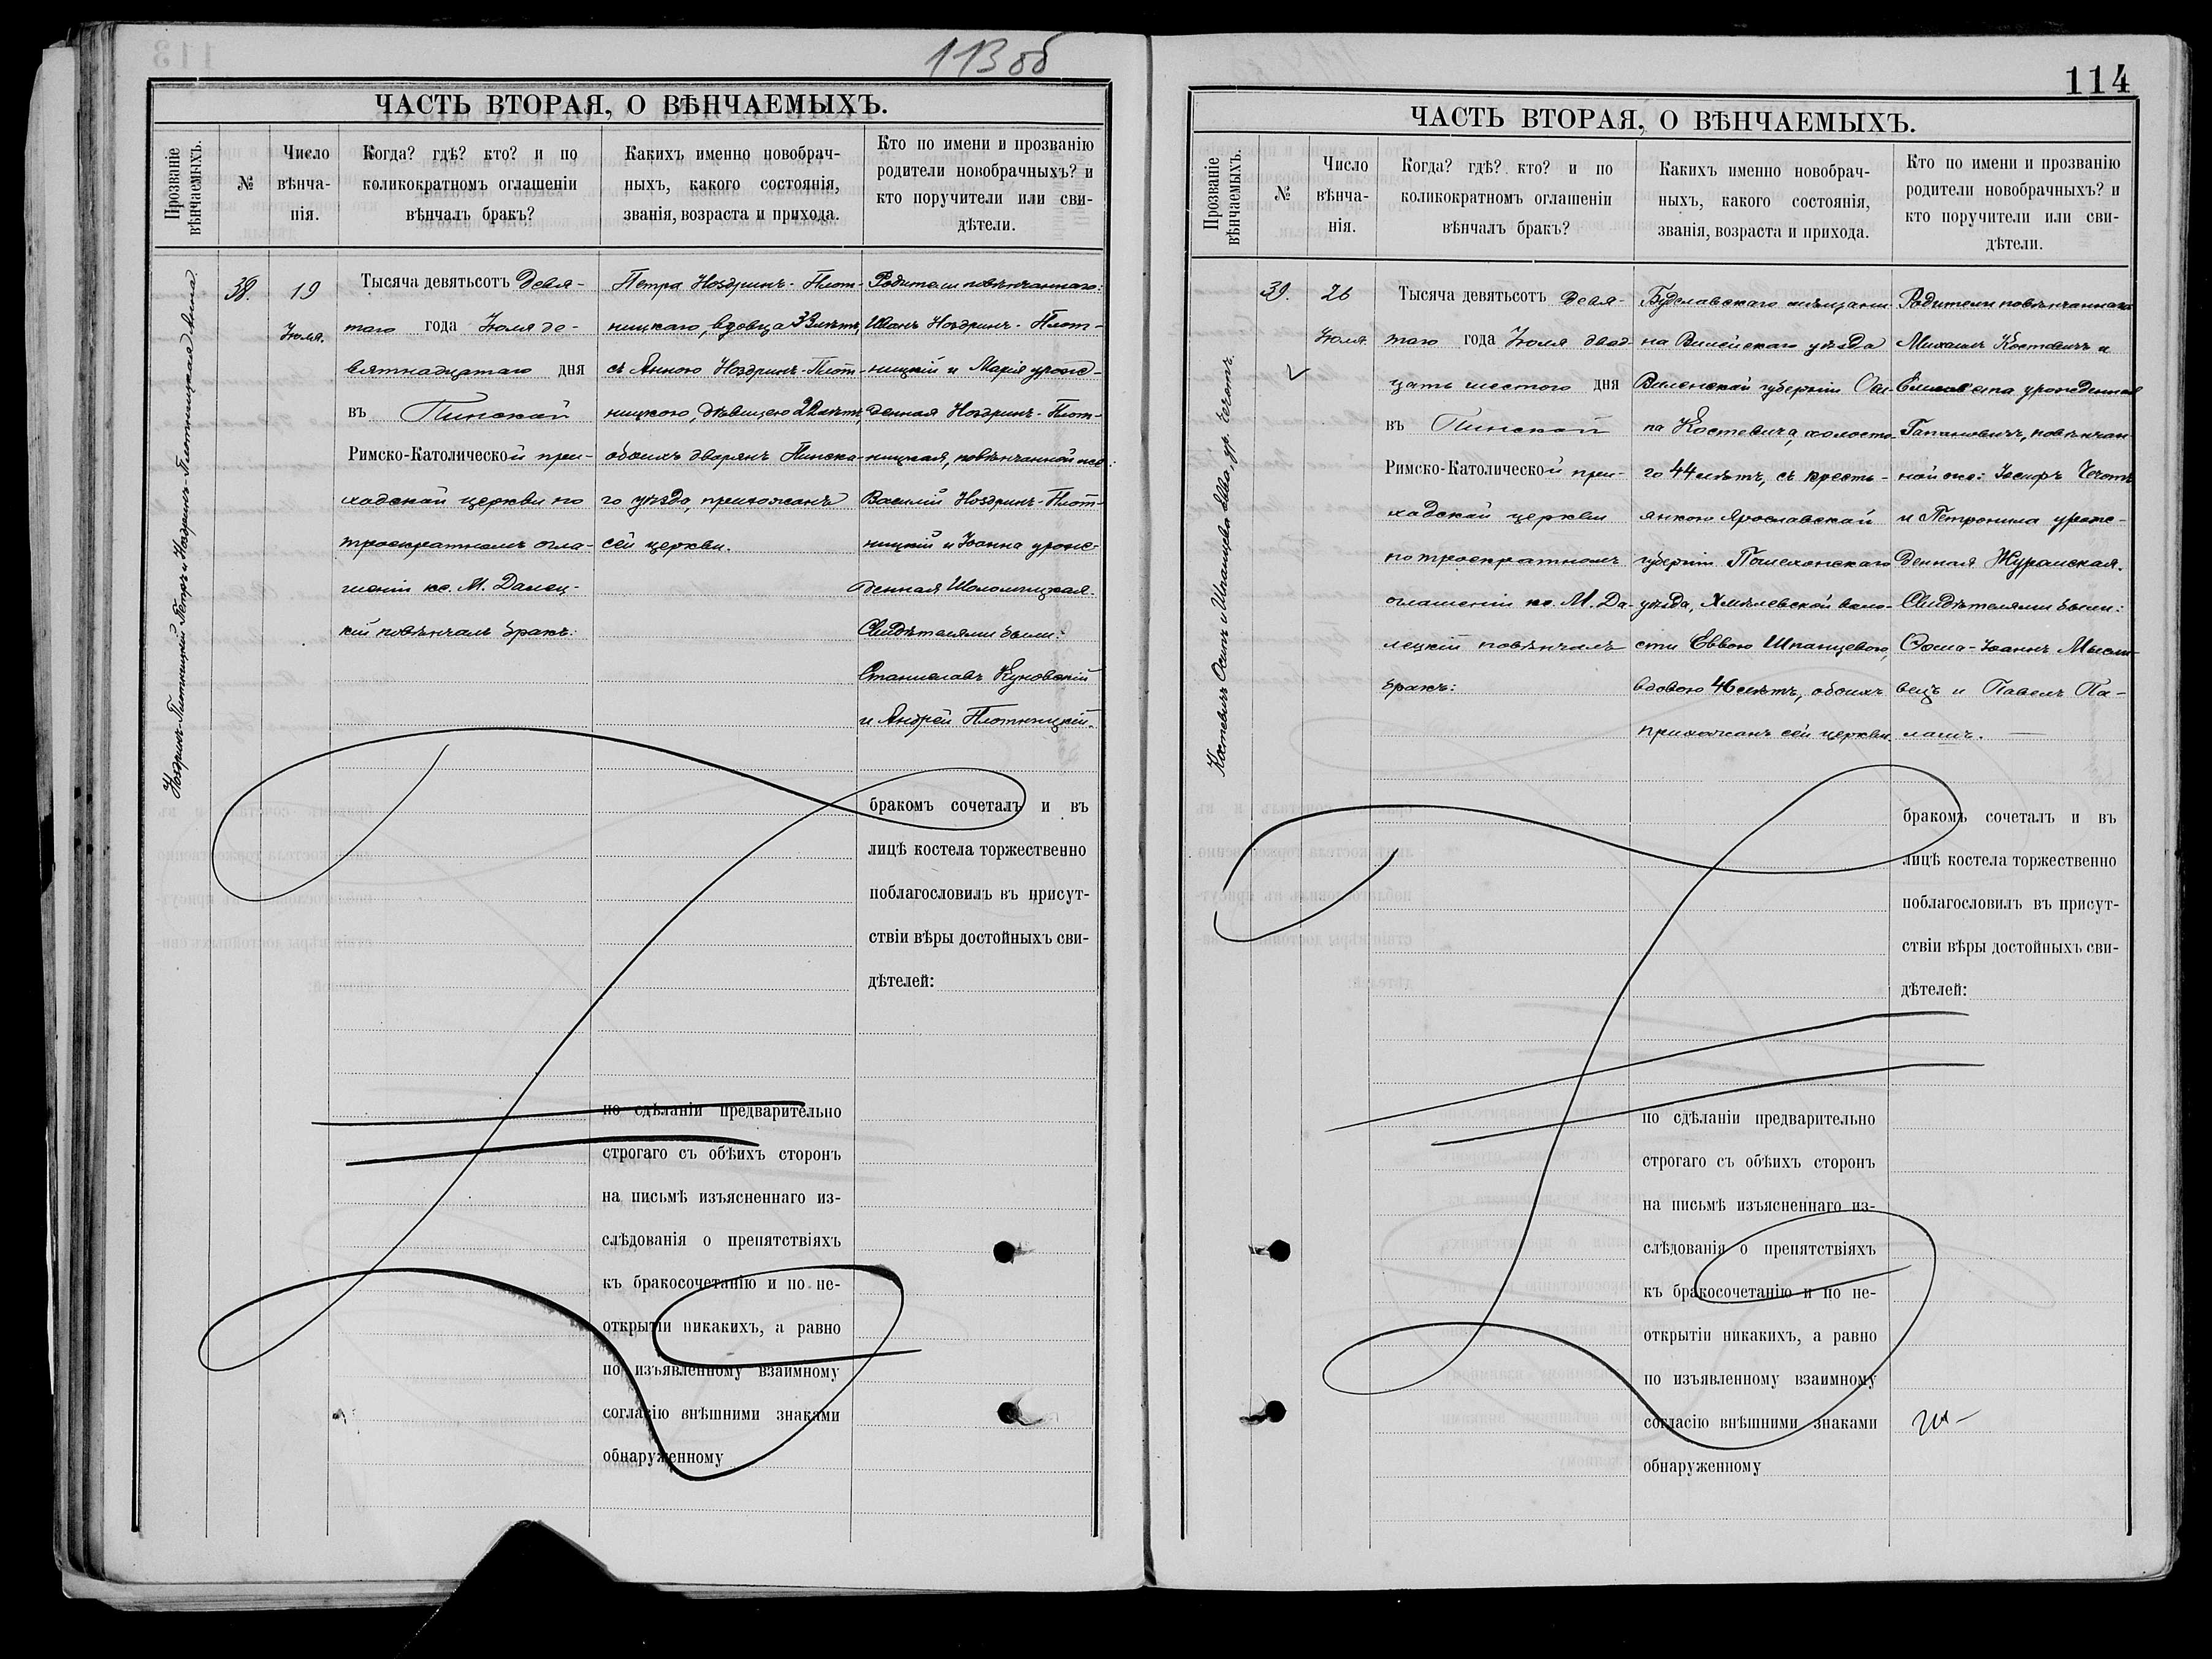 113 об
ЧАСТЬ ВТОРАЯ, О ВѢНЧАЕМЫХЪ.
Прозваніе вѣнчаемыхъ.
№
Число вѣнча-нія.
Когда? гдѣ? кто? и по
коликократномъ оглашеніи
вѣнчалъ бракъ?
Какихъ именно новобрач-
ныхъ, какого состоянія,
званія, возраста и прихода.
Кто по имени и прозванію
родители новобрачныхъ? и
кто поручители или сви-
дѣтели.
Ноздринъ-Плотницкій Петръ и Ноздринъ-Плотницкая Анна.
38.
19
Іюля.
Тысяча девятьсотъ Девя-
таго года Іюля де-
вятнадцатаго дня
въ Пинской
Римско-Католической при-
ходской церкви по
троекратномъ огла-
шеніи кс. М. Далец-
кій повѣнчалъ бракъ:
Петра Ноздринъ-Плот-
ницкаго, вдовца 33 лѣтъ,
съ Анною Ноздринъ-Плот-
ницкою, дѣвицею 22 лѣтъ,
обоихъ дворянъ Пинска-
го уѣзда, прихожанъ
сей церкви.
Родители повѣнчаннаго:
Иванъ Ноздринъ-Плот-
ницкій и Марія урожд-
денная Ноздринъ-Плот-
ницкая, повѣнчанной же:
Василій Ноздринъ-Плот-
ницкій и Іоанна урож-
денная Шоломицкая.
Свидѣтелями были:
Станиславъ Куновскій
и Андрей Плотницкій.
бракомъ сочеталъ и въ
лицѣ костела торжественно
поблагословилъ въ присут-
ствіи вѣры достойныхъ сви-
дѣтелей:
по сдѣланіи предварительно
строгаго съ обѣихъ сторонъ
на письмѣ изъясненнаго из-
слѣдованія о препятствіяхъ
къ бракосочетанію и по не-
открытіи никакихъ, а равно
по изъявленному взаимному
согласію внѣшними знаками
обнаруженному
114
ЧАСТЬ ВТОРАЯ, О ВѢНЧАЕМЫХЪ.
Прозваніе вѣнчаемыхъ.
№
Число вѣнча-нія.
Когда? гдѣ? кто? и по
коликократномъ оглашеніи
вѣнчалъ бракъ?
Какихъ именно новобрач-
ныхъ, какого состоянія,
званія, возраста и прихода.
Кто по имени и прозванію
родители новобрачныхъ? и
кто поручители или сви-
дѣтели.
Костевичъ Осипъ и Шпанцева Евва, ур. Чечотъ.
39.
26
Іюля
Тысяча девятьсотъ Девя-
таго года Іюля двад-
цать шестого дня
въ Пинской
Римско-Католической при-
ходской церкви
по троекратномъ
оглашеніи кс. М. Да-
лецкій повѣнчалъ
бракъ:
Будславскаго мѣщани-
на Вилейскаго уѣзда
Виленской губерніи Оси-
па Костевича, холосто-
го 44 лѣтъ, съ кресть-
янкою Ярославской
губерніи Пошехонскаго
уѣзда, Хмѣлевской воло-
сти Еввою Шпанцевою,
вдовою 46 лѣтъ, обоихъ
прихожанъ сей церкви.
Родители повѣнчаннаго
Михаилъ Костевичъ и
урожденная
Гапановичъ, повѣнчан-
ной же: Іосифъ Чечотъ
и Петронила урож-
денная Журомская.
Свидѣтелями были:
Ѳома-Іоаннъ Мысли-
вецъ и Павелъ Па-
лашъ.
бракомъ сочеталъ и въ
лицѣ костела торжественно
поблагословилъ въ присут-
ствіи вѣры достойныхъ сви-
дѣтелей:
по сдѣланіи предварительно
строгаго съ обѣихъ сторонъ
на письмѣ изъясненнаго из-
слѣдованія о препятствіяхъ
къ бракосочетанію и по не-
открытіи никакихъ, а равно
по изъявленному взаимному
согласію внѣшними знаками
обнаруженному